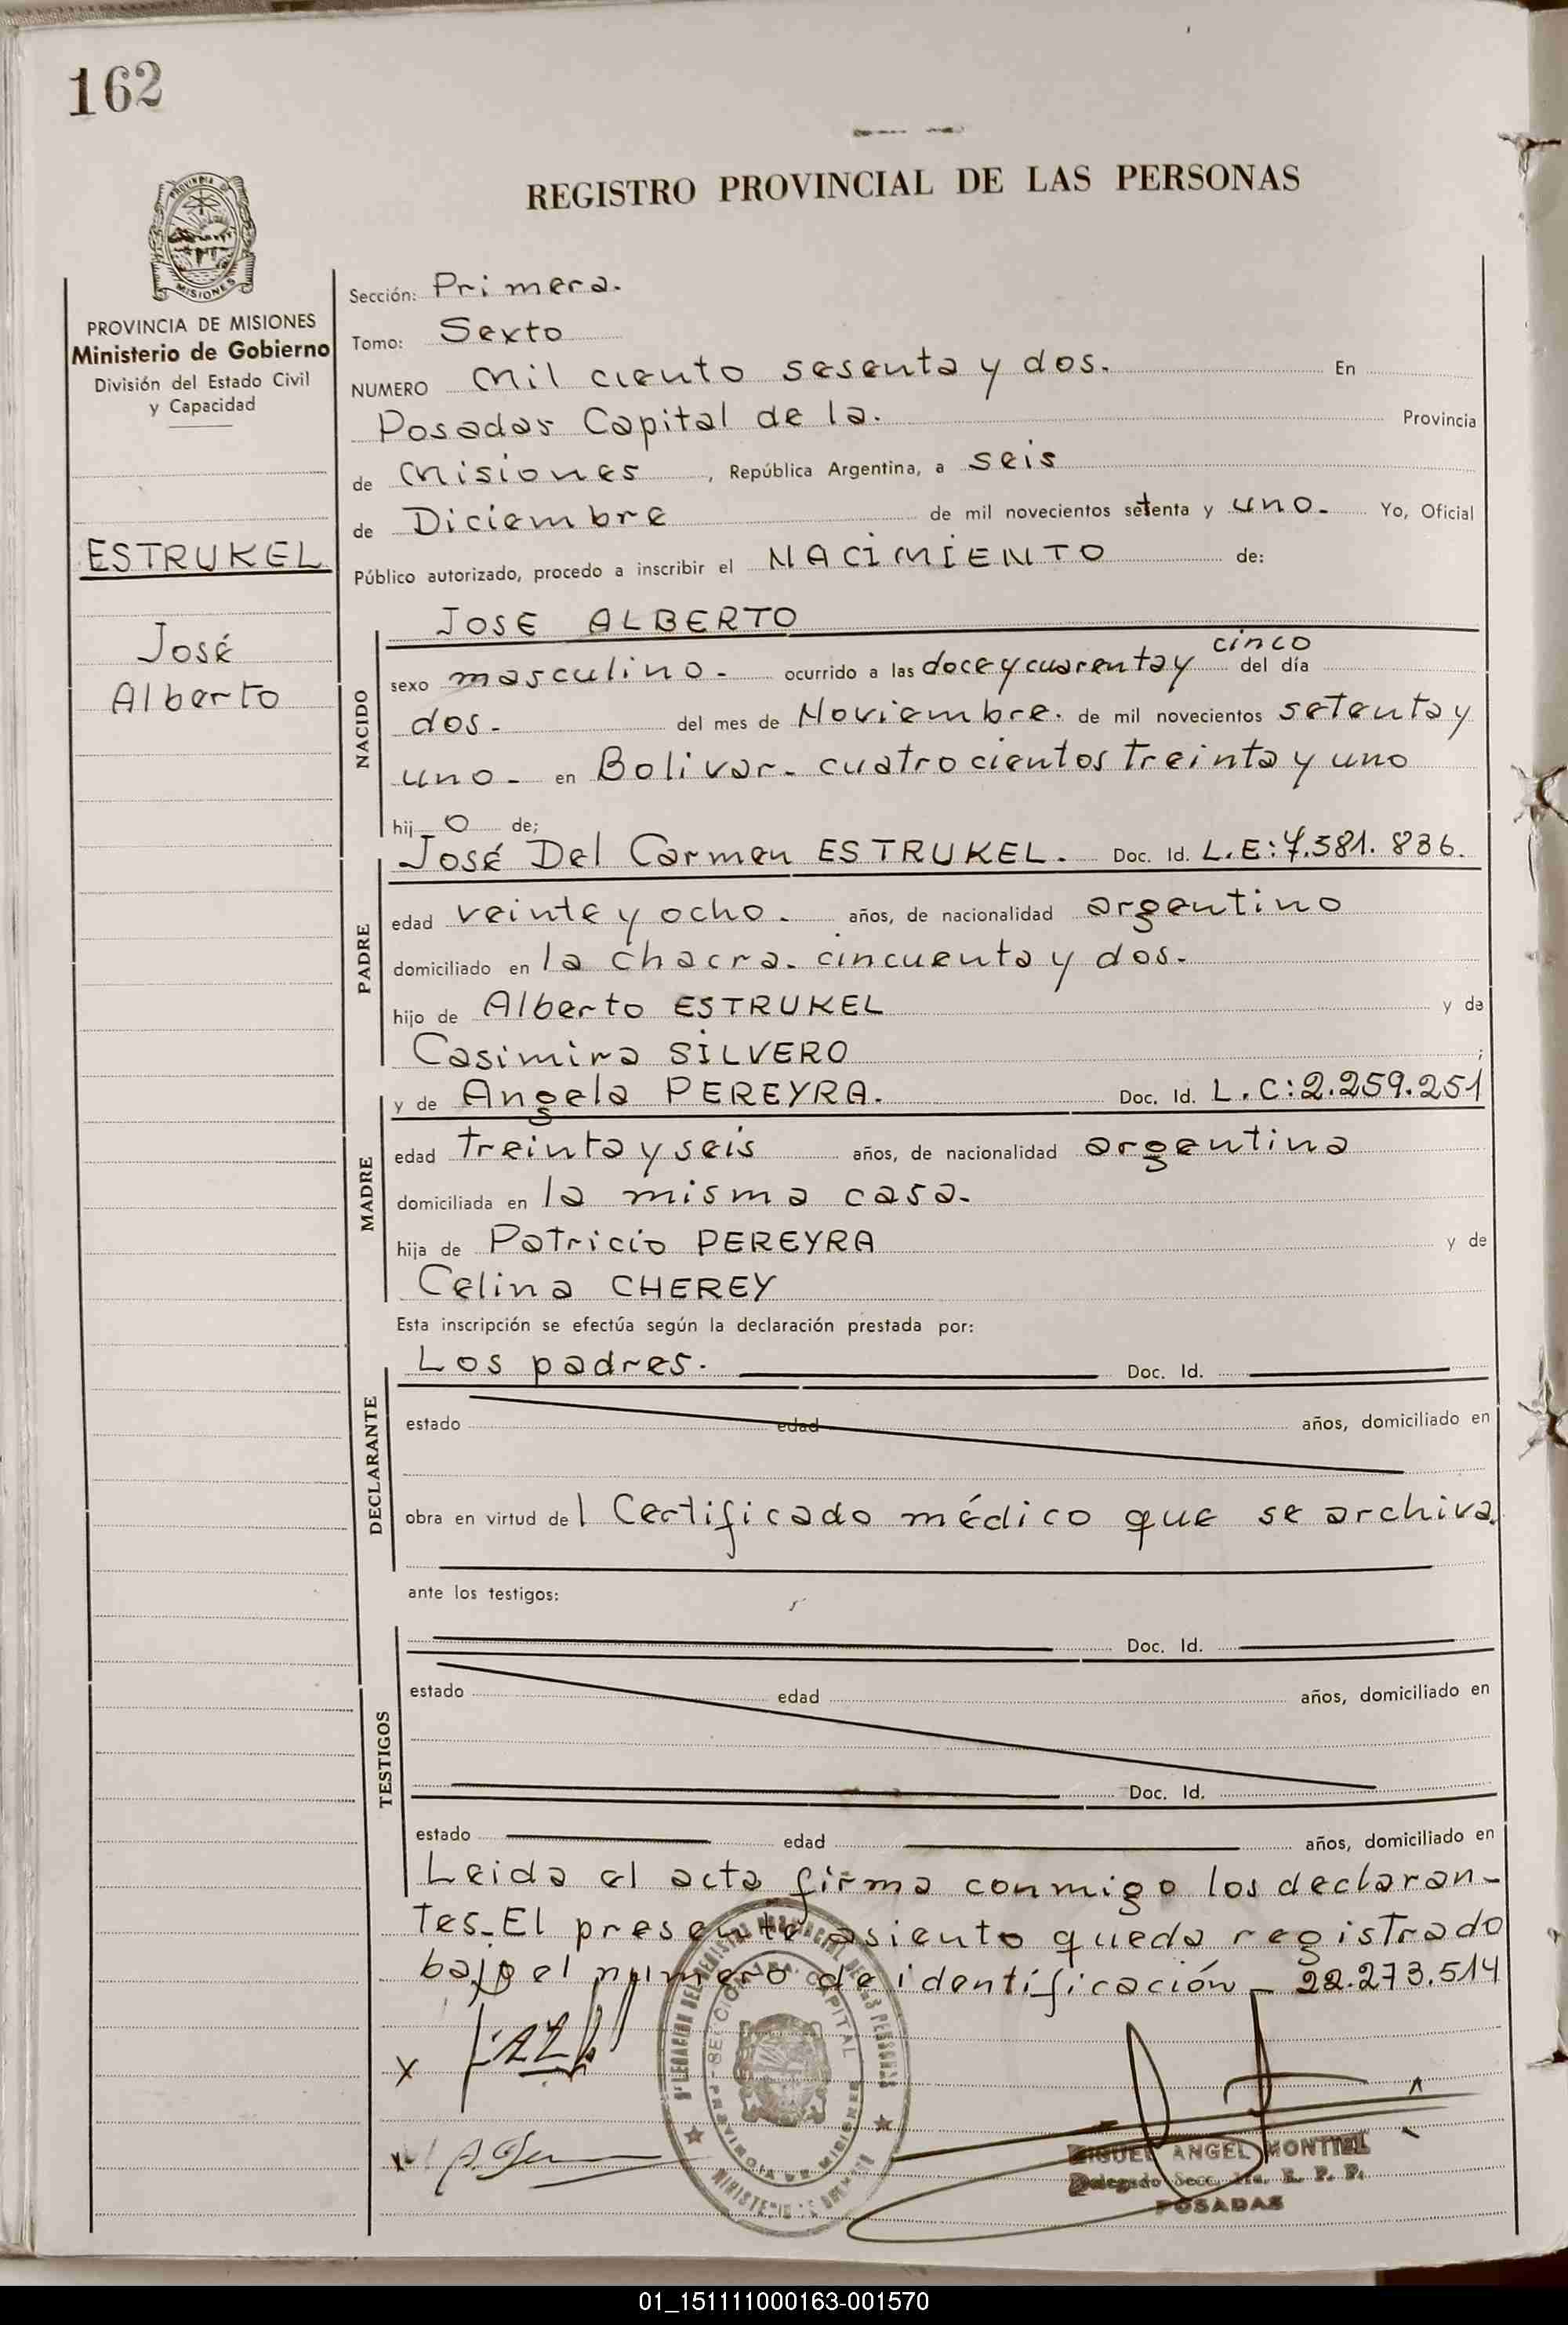 162
REGISTRO PROVINCIAL DE LAS PERSONAS
PROVINCIA
MISIONES
PROVINCIA DE MISIONES
Ministerio de Gobierno
División del Estado Civil
y Capacidad
ESTRUKEL
José
Alberto
Sección: Primera.
Tomo: Sexto
NUMERO mil ciento sesenta y dos. En
Posadas Capital de la. Provincia
de Misiones, República Argentina, a seis
de Diciembre de mil novecientos setenta y uno. Yo, Oficial
Público autorizado, procedo a inscribir el NACIMIENTO de:
NACIDO
JOSE ALBERTO
cinco
sexo masculino - ocurrido a las doce y cuarenta y del día
dos - del mes de Noviembre. de mil novecientos setenta y
uno - en Bolivar - cuatrocientos treinta y uno
hij o de;
PADRE
José Del Carmen ESTRUKEL. Doc. Id. L.E: 7.581.836.
edad veinte y ocho. años, de nacionalidad argentino
domiciliado en la chacra. cincuenta y dos.
hijo de Alberto ESTRUKEL y de
Casimira SILVERO ;
MADRE
y de Angela PEREYRA. Doc. Id. L.C: 2.259.251
edad treinta y seis años, de nacionalidad argentina
domiciliada en la misma casa.
hija de Patricio PEREYRA y de
Celina CHEREY
Esta inscripción se efectúa según la declaración prestada por:
DECLARANTE
Los padres. Doc. Id.
estado edad años, domiciliado en
obra en virtud del Certificado médico que se archiva.
ante los testigos:
TESTIGOS
Doc. Id.
estado edad años, domiciliado en
Doc. Id.
estado edad años, domiciliado en
Leida el acta firma conmigo los declaran-
tes. El presente asiento queda registrado
bajo el numero de identificación - 22.273.514
X
X
SECCION 1RA. CAPITAL
PROVINCIA DE MISIONES
MIGUEL ANGEL MONTIEL
Delegado Secc. 1ra. R. P. P.
POSADAS
01_151111000163-001570